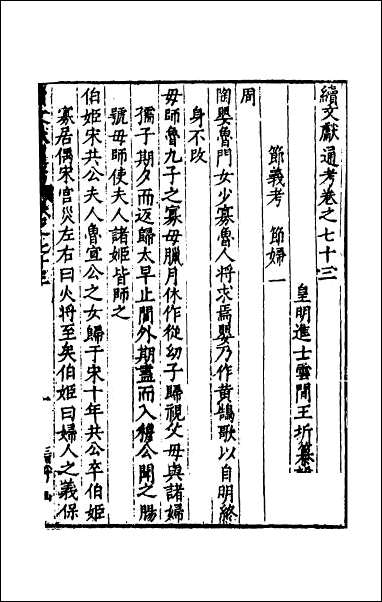 續文獻通考卷之七十三
皇明進士雲間王圻纂輯
節義考 節婦一
周
陶嬰魯門女少寡魯人將求焉嬰乃作黃鵠歌以自明終
身不改
母師魯九子之寡母臘月休作從幼子歸視父母與諸婦
孺子期夕而返歸太早止閭外期盡而入穆公聞之賜
號母師使夫人諸姬皆師之
伯姬宋共公夫人魯宣公之女歸于宋十年共公卒伯姬
寡居偶宋宮災左右曰火將至矣伯姬曰婦人之義保